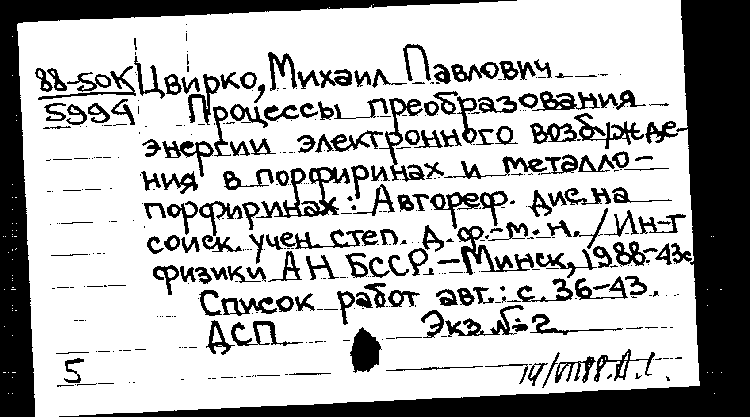 88-50К Цвирко, Михаил Павлович.
5994 Процессы преобразования
энергии электронного возбужде-
ния в порфиринах и металло-
порфиринах: Автореф. дис. на
соиск. учен. степ. д. ф.-м. н. / Ин-т
физики АН БССР. – Минск, 1988.-43с.
Список работ авт.: с. 36-43.
ДСП. Экз. №2.
5